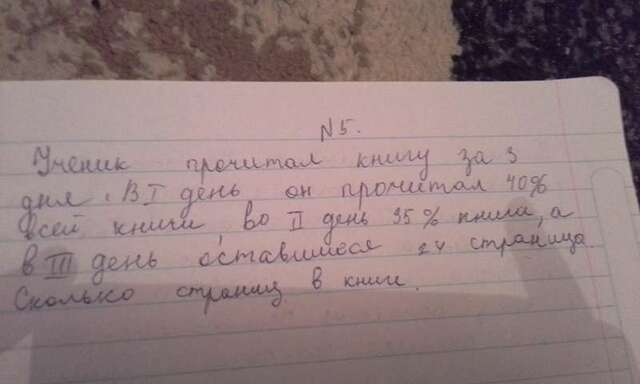 N 5.
Ученик прочитал книгу за 3
дня. В I день он прочитал 40%
всей книги, во II день 35% книга, а
в III день оставшиеся 24 страница.
Сколько страниц в книге.